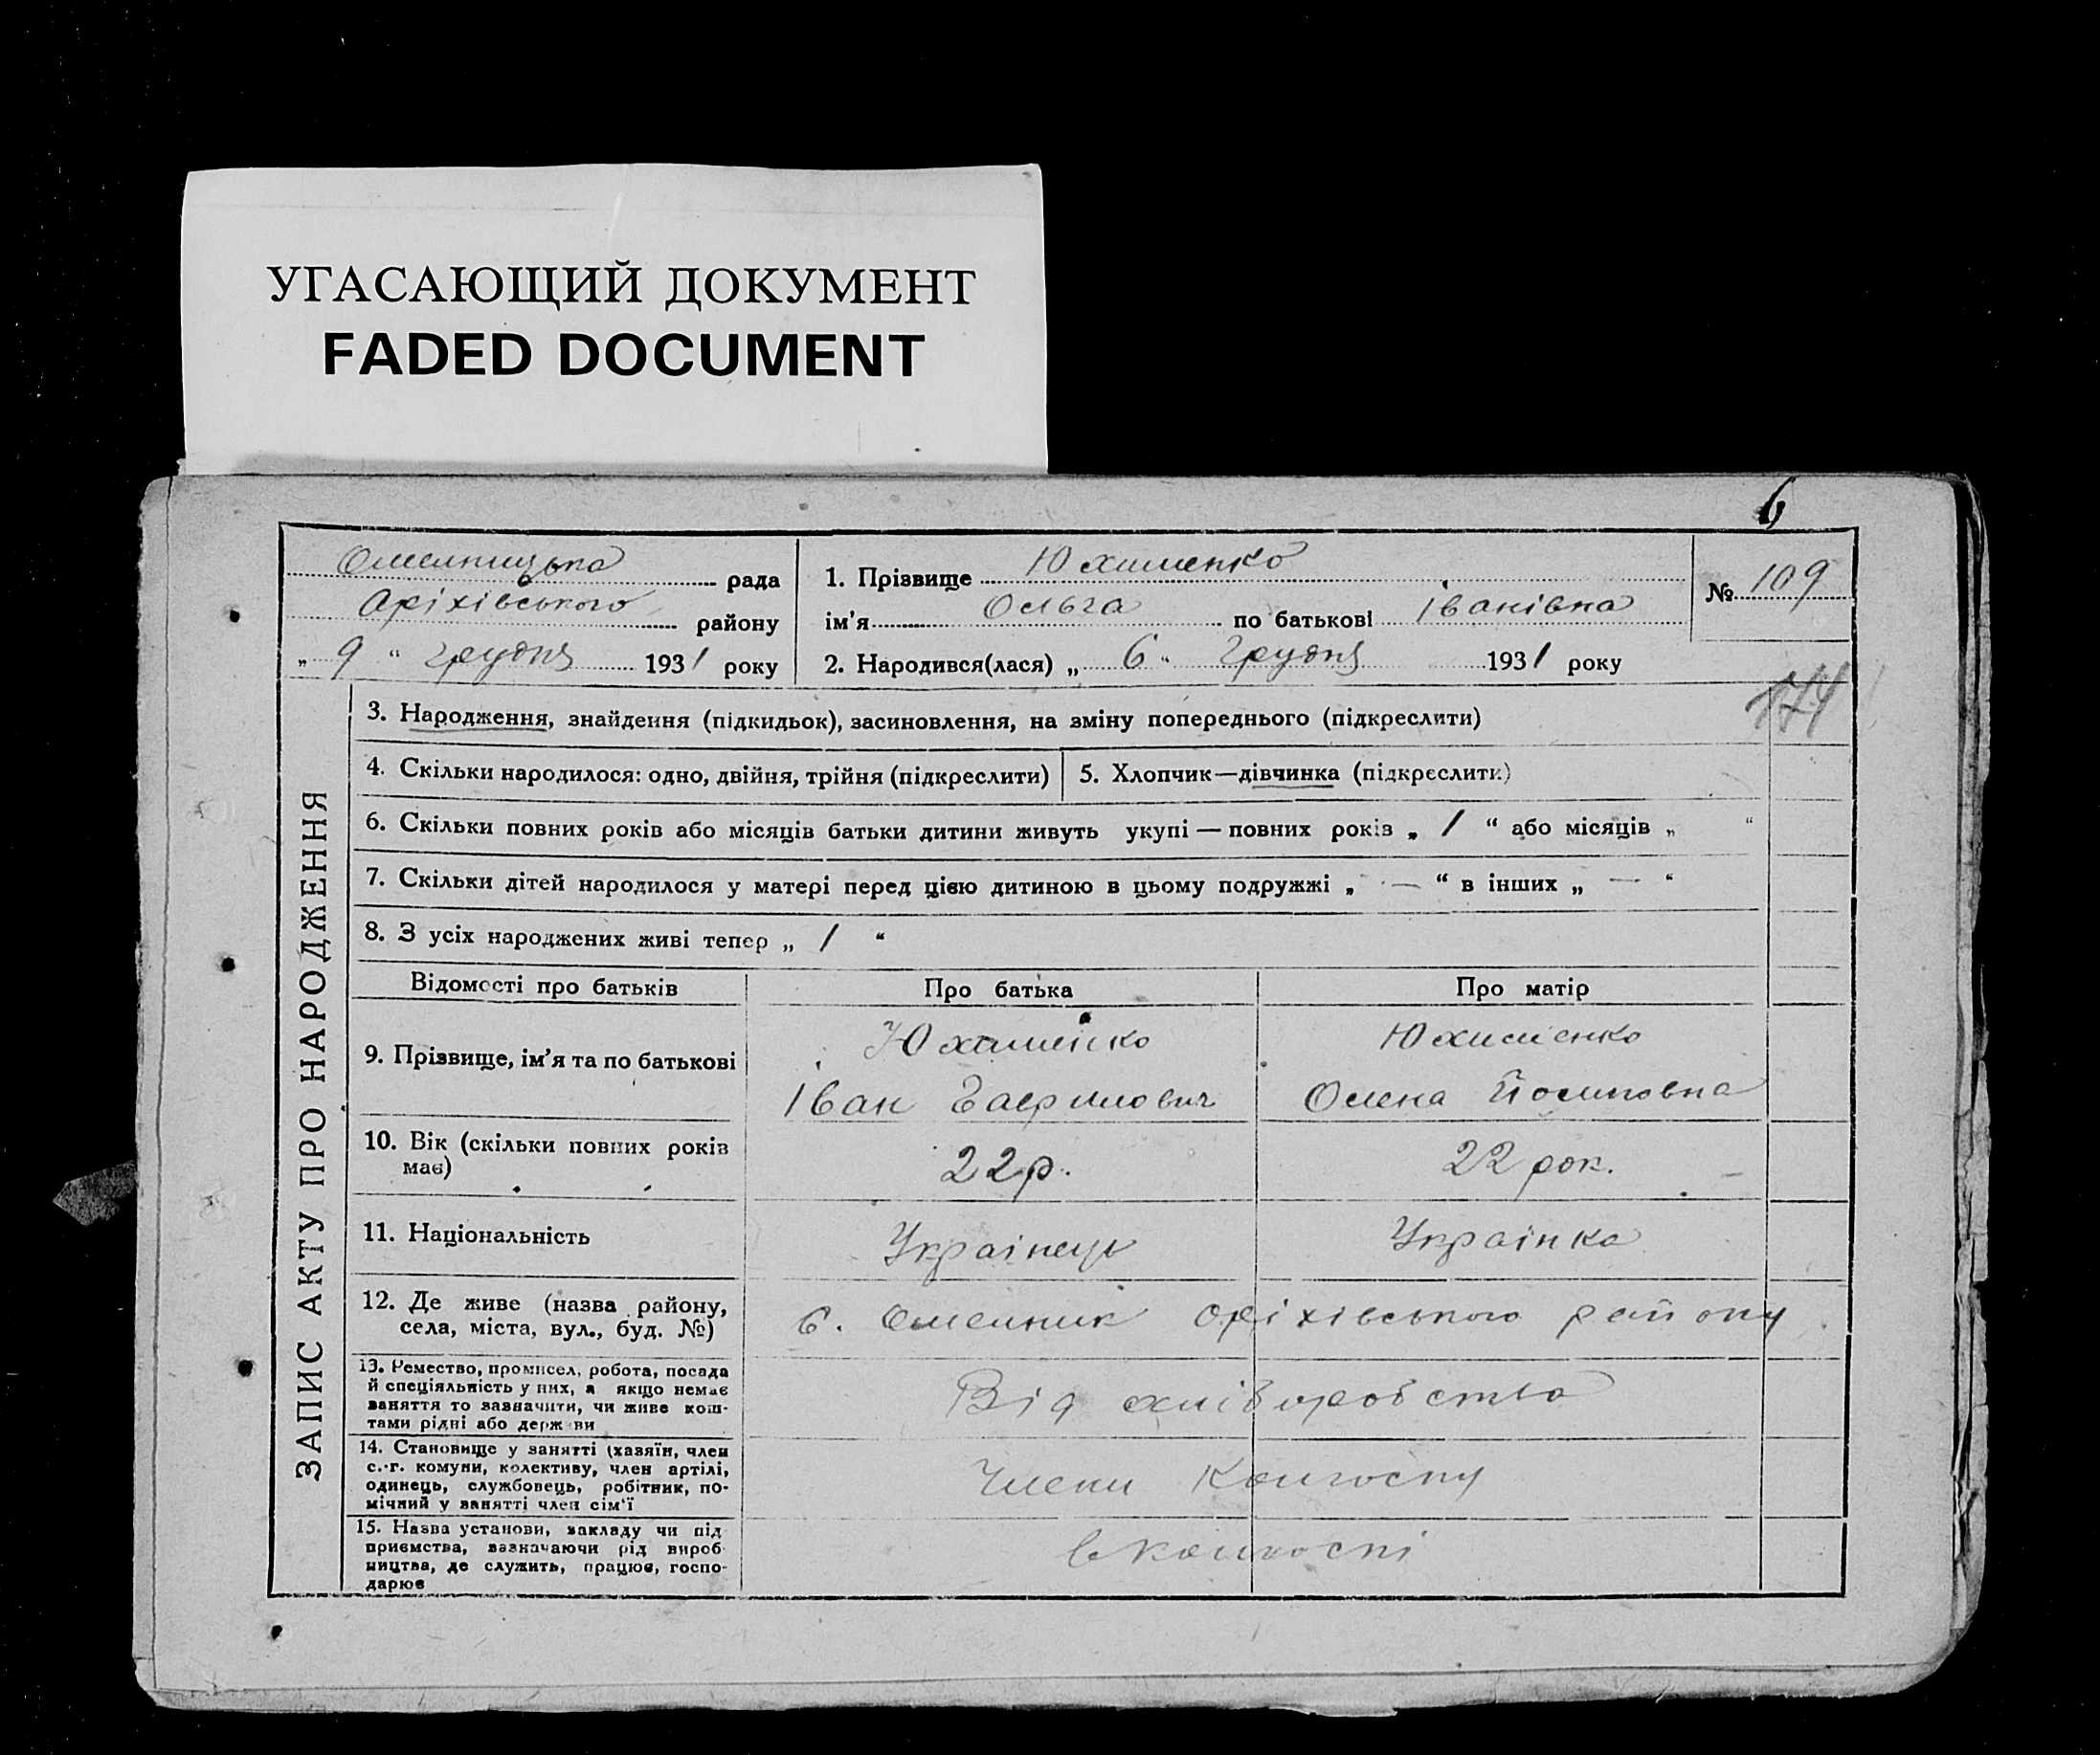 УГАСАЮЩИЙ ДОКУМЕНТ
FADED DOCUMENT
6
Омелницька рада
Оріхівського району
„ 9 “ грудня 1931 року
1. Прізвище Юхименко
ім'я Ольга по батькові Іванівна
2. Народився(лася) „ 6 “ Грудня 1931 року
№ 109
ЗАПИС АКТУ ПРО НАРОДЖЕННЯ
3. Народження, знайдення (підкидьок), засиновлення, на зміну попереднього (підкреслити)
4. Скільки народилося: одно, двійня, трійня (підкреслити)
5. Хлопчик—дівчинка (підкреслити)
6. Скільки повних років або місяців батьки дитини живуть укупі — повних років „ 1 “ або місяців „ “
7. Скільки дітей народилося у матері перед цією дитиною в цьому подружжі „ — “ в інших „ — “
8. З усіх народжених живі тепер „ 1 “
Відомості про батьків Про батька Про матір
9. Прізвище, ім'я та по батькові
Юхименко Юхименко
Іван Гаврилович Олена
10. Вік (скільки повних років
має)
22 р. 22 рок.
11. Національність Украінець Украінка
12. Де живе (назва району,
села, міста, вул., буд. №)
с. Омелник Оріхівського району
13. Ремество, промисел, робота, посада
й спеціяльність у них, а якщо немає
заняття то зазначити, чи живе кош-
тами рідні або держави
Від хліборобства
14. Становище у занятті (хазяїн, член
с.-г. комуни, колективу, член артілі,
одинець, службовець, робітник, по-
мічний у занятті член сім'ї
Члени Колгоспу
15. Назва установи, закладу чи під
приємства, зазначаючи рід вироб-
ництва, де служить, працює, госпо-
дарює
в колгоспі